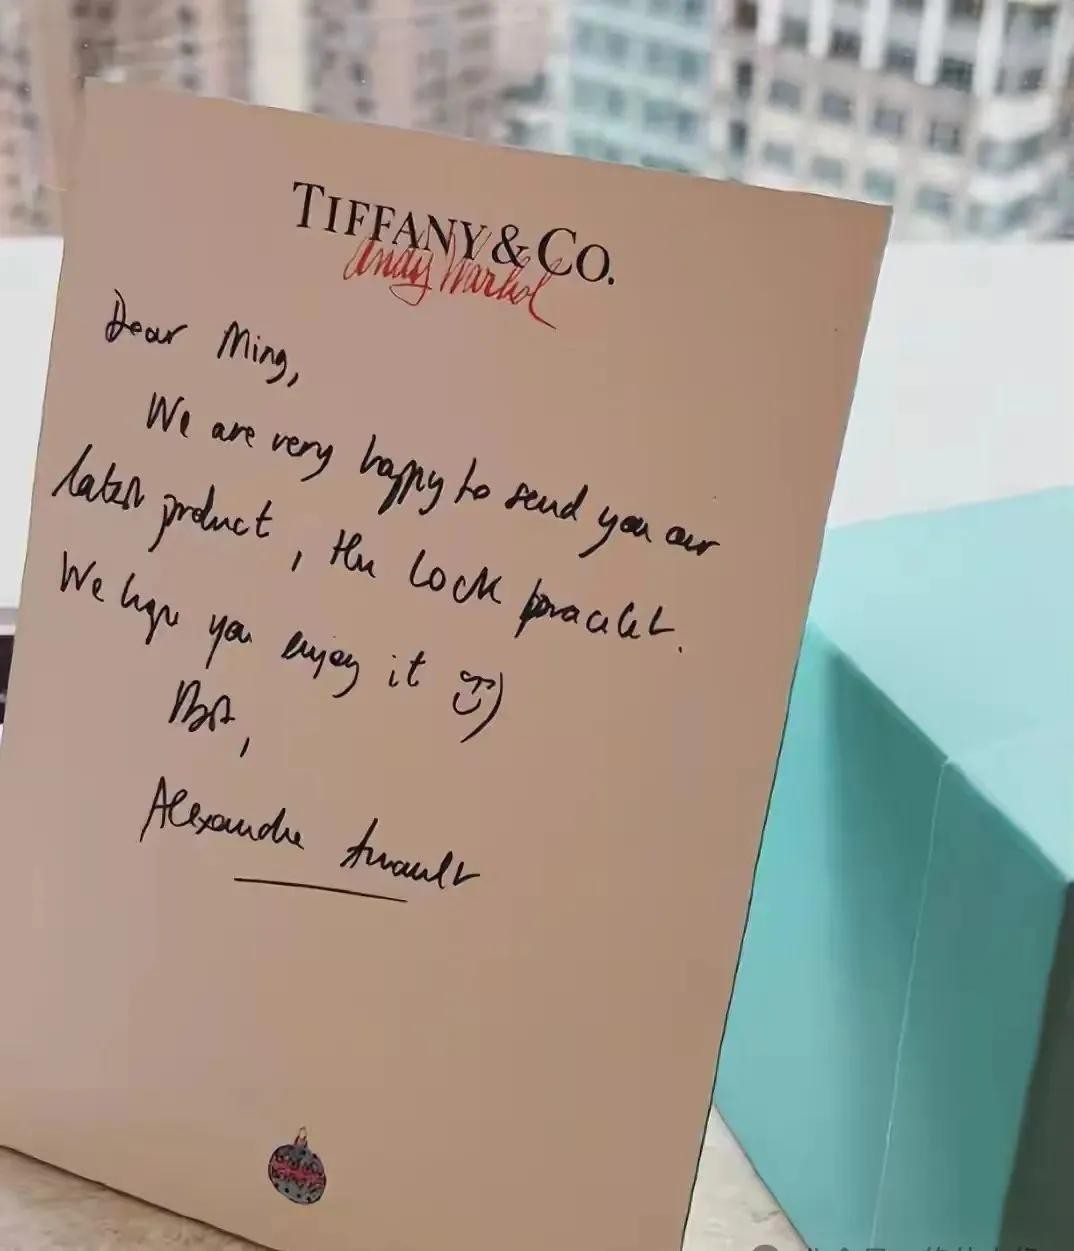 TIFFANY & CO.
Andy Warhol
Dear Ming,
We are very happy to send you our
latest product, the Lock bracelet.
We hope you enjoy it :)
Best,
Alexandre Arnault